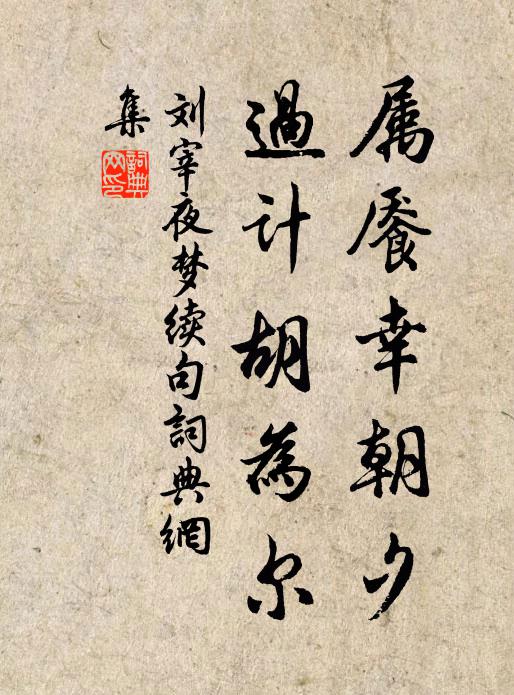 属餍幸朝夕
过计胡為尔
刘宰夜梦续句詞典網
集
詞典網印